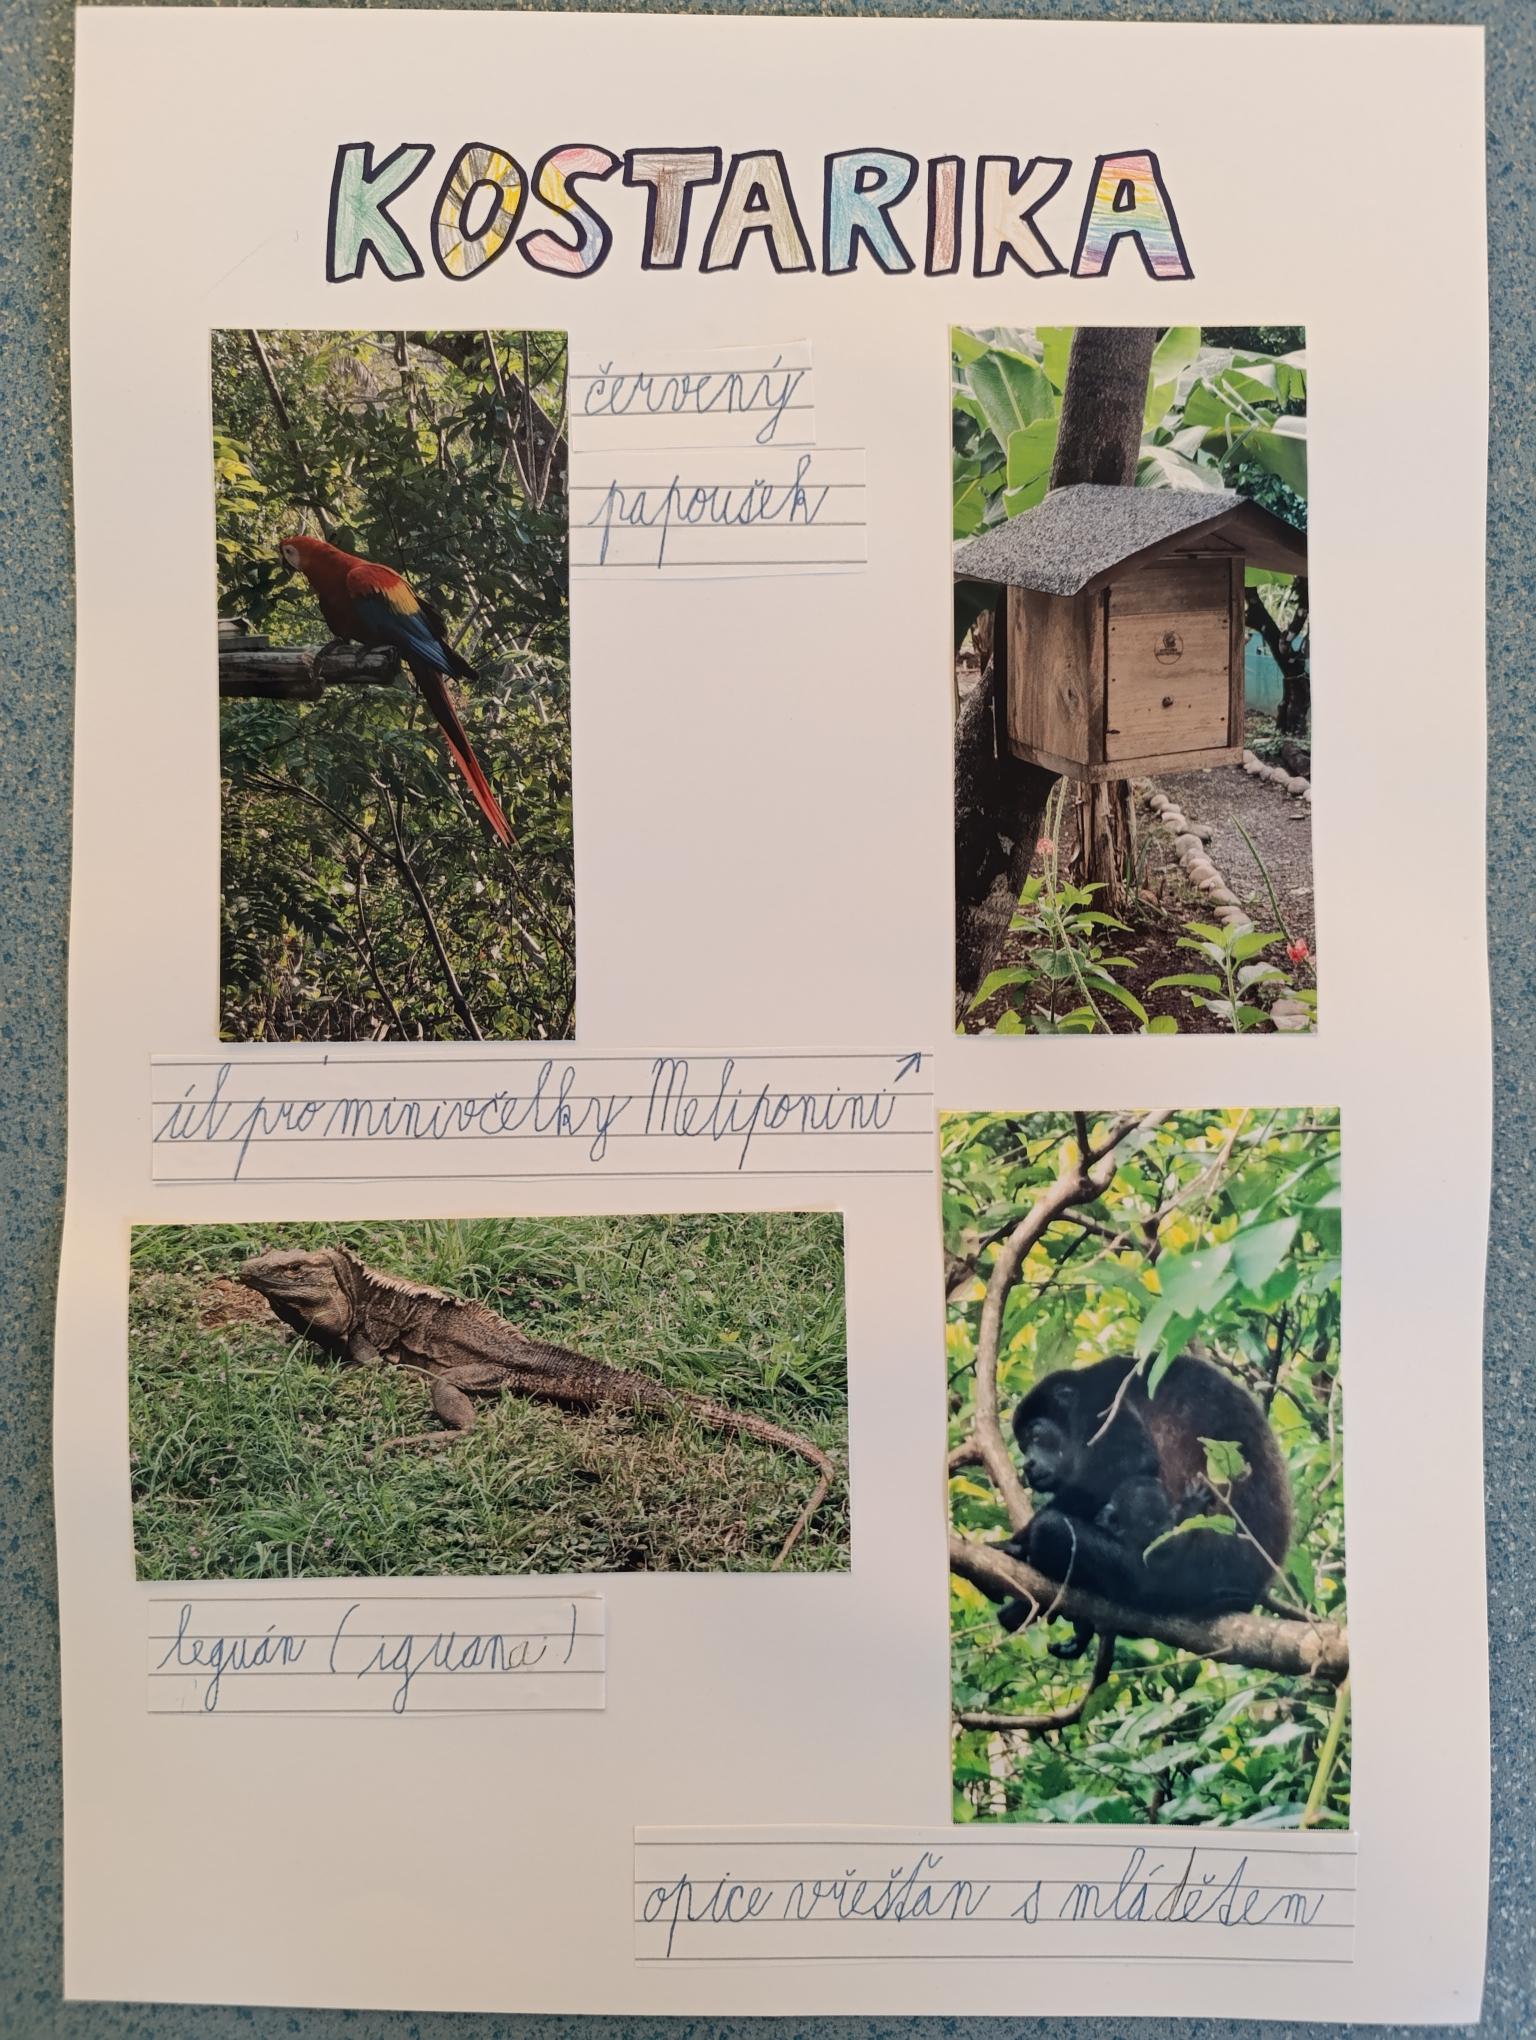 KOSTARIKA
červený
papoušek
úl pro minivčelky Meliponini
leguán (iguana)
opice vřešťan s mládětem